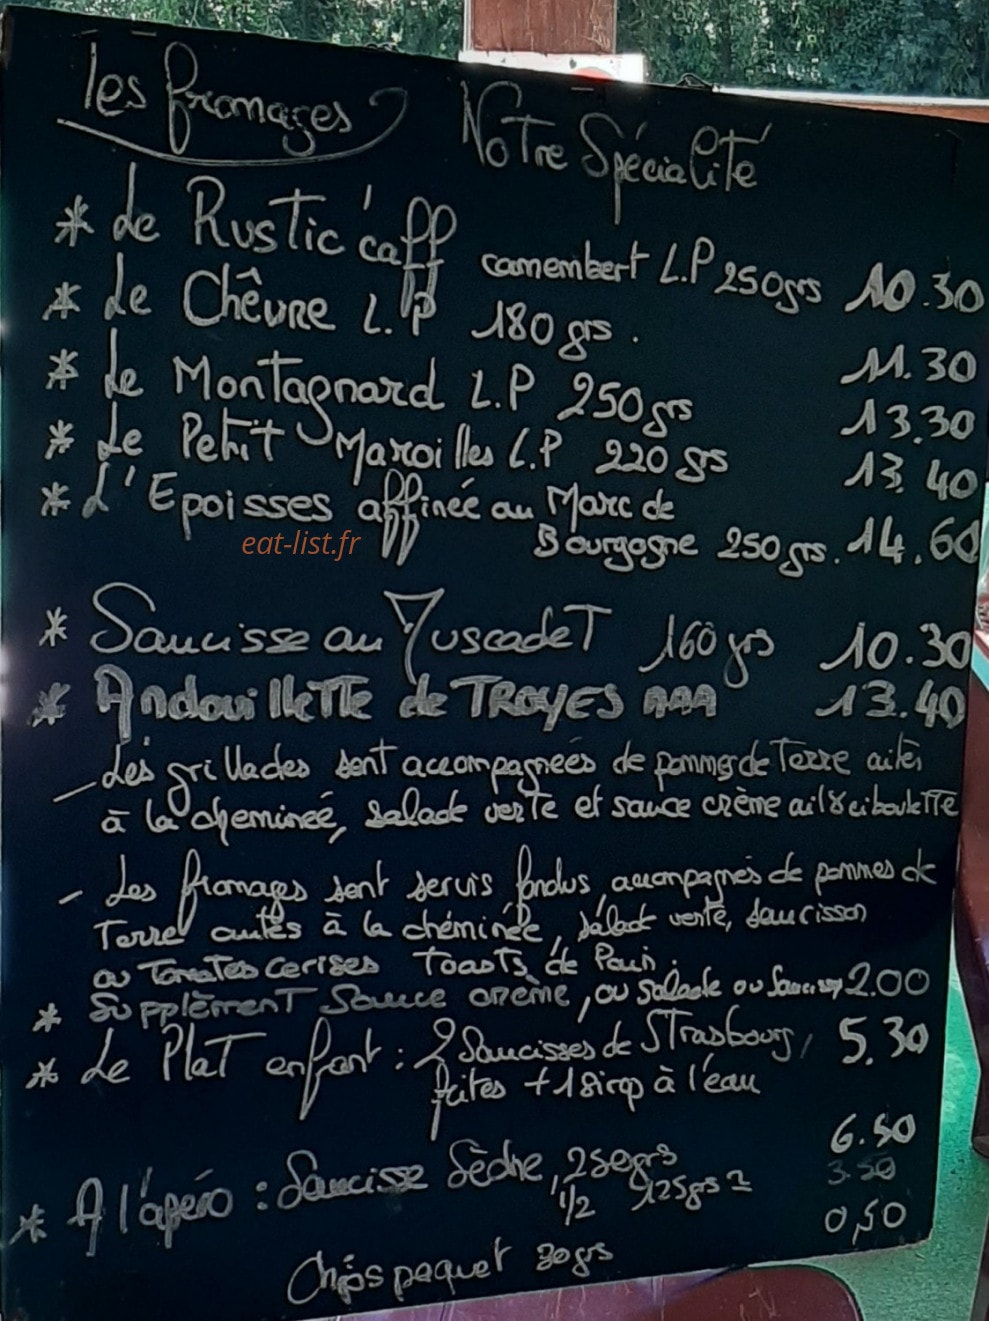 Les fromages Notre Spécialité
* Le Rustic'caff camembert L.P 250grs 10.30
* Le Chêvre L.P 180grs. 11.30
* Le Montagnard L.P 250grs 13.30
* Le Petit Maroilles L.P 220grs 13.40
* L'Epoisses affinée au Marc de
Bourgogne 250grs. 14.60
eat-list.fr
* Saucisse au Muscadet 160grs 10.30
* Andouillette de TROYES AAA 13.40
- Les grillades sont accompagnées de pommes de Terre cuites
à la cheminée, salade verte et sauce crème ail & ciboulette
- Les fromages sont servis fondus, accompagnés de pommes de
Terre cuites à la chéminée, salade verte, saucisson
ou Tomates cerises Toasts de Pain.
* Supplèment Sauce crème, ou salade ou 2.00
* Le Plat enfant : 2 Saucisses de Strasbourg, 5.30
frites + 1 sirop à l'eau
* A l'apéro : Saucisse Sèche, 250grs 6.50
1/2 125grs = 3.50
Chips paquet 30grs 0,50